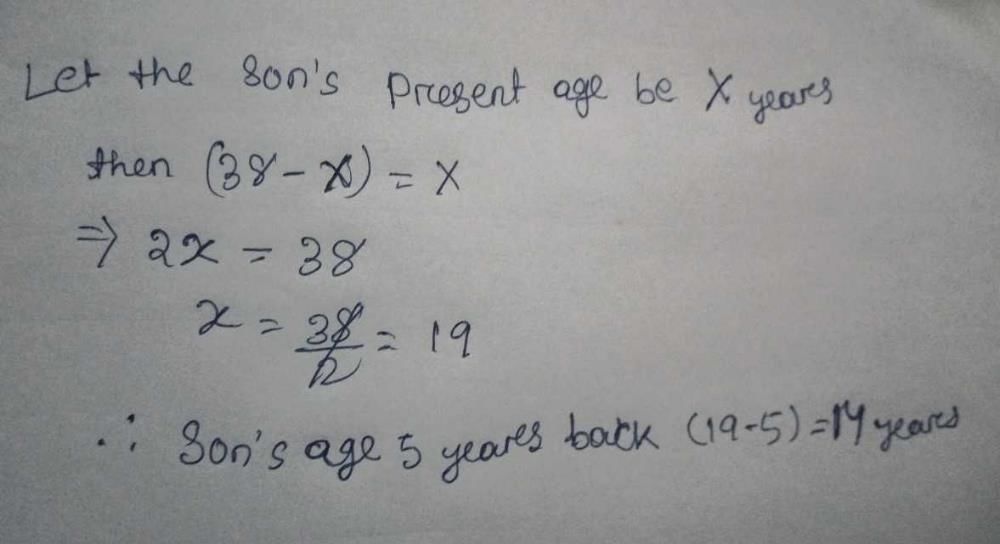 Let the Son's Present age be X years
then (38 - x) = X
⇒ 2x = 38
x = 38/2 = 19
∴ Son's age 5 years back (19-5) = 14 years